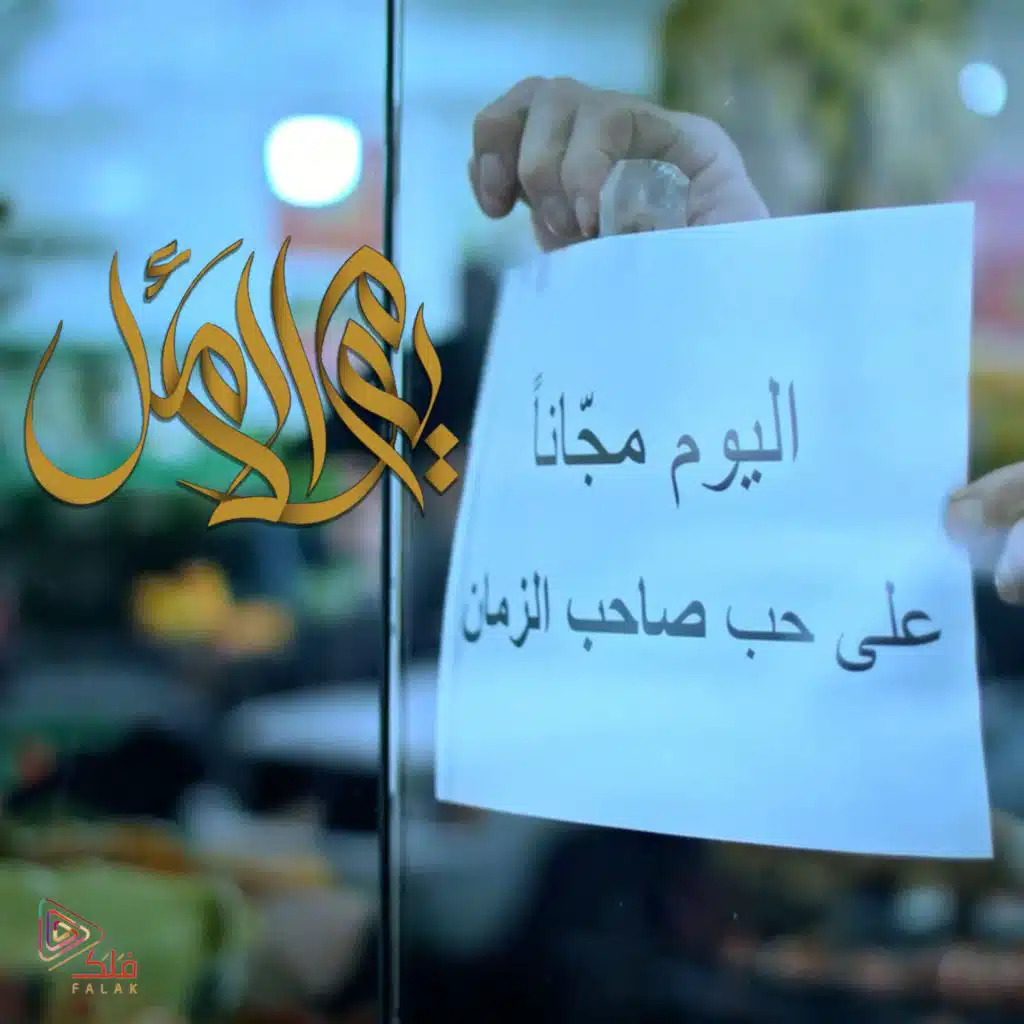 اليوم مجّاناً
على حب صاحب الزمان
فلك
FALAK